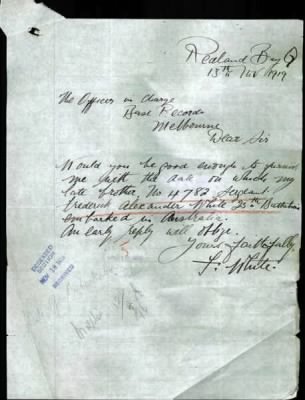 Redland Bay
13th Nov 1919
The Officer in Charge
Base Records
Melbourne
Dear Sir
Would you be good enough to furnish
me with the date on which my
late brother No 4782 Sergeant
Frederick Alexander White 25th Battalion
embarked in Australia.
An early reply will oblige.
Yours faithfully
F. White.
SECTION
NOV 18
RECEIVED